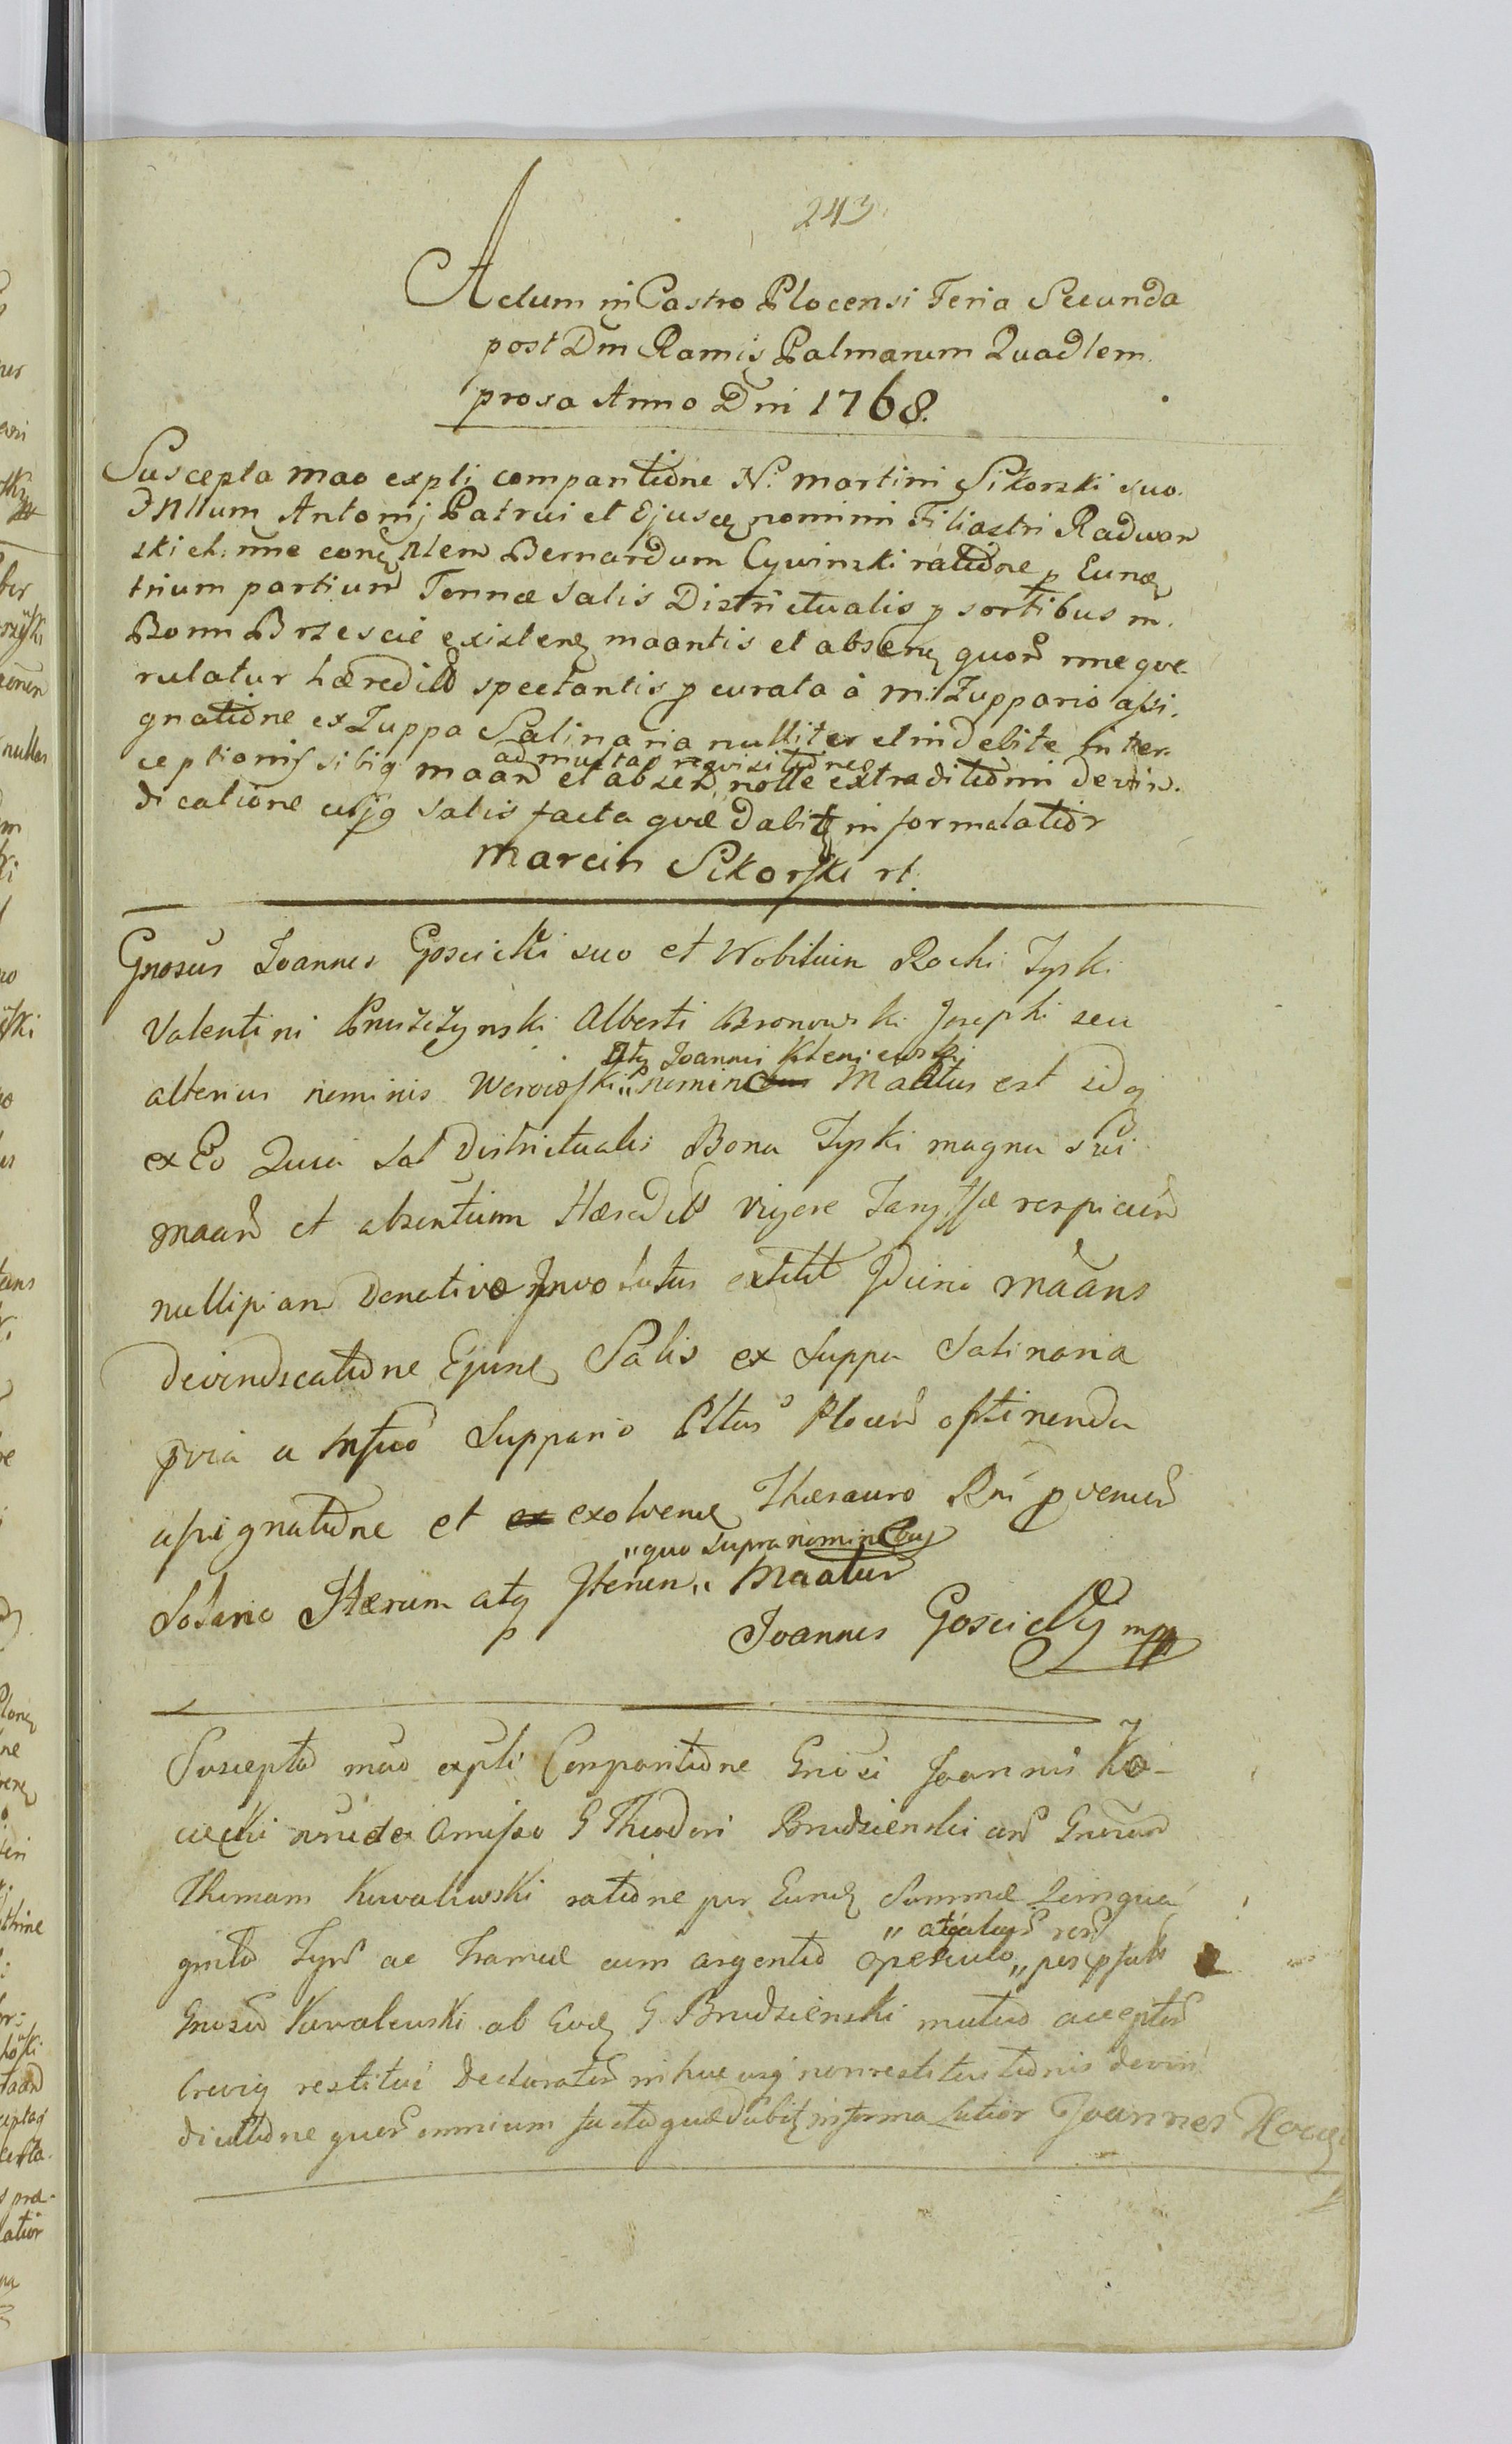 243
Actum in Castro Plocensi Feria Secunda
post Dm Ramis Palmarum Quadlem
prosa Anno Dni 1768.
Suscepta mao expli comparitione N. Martini Sikorski suo
Antonij Patrui et Ejusq nomini Filiastri Radwan
ski et Bernardum Cywinski ratione p Eunq
trium partium Tonnæ Salis Districtualis p sortibus in
Bonn Brzescie existenq maantis et absenq quor nneqve
rulatur hæredit spectantis p curata à m: Zuppario assi.
gnatione ex Zuppa Salinaria nulliter et indebite Inter
ceptionis sibiq maan et absen ad multas reqvisitiones nolle extraditioni devin.
dicatione cujq salis facta qvæ dabitq in forma latior
Marcin Sikorski rt.
Gnosus Joannes Goscicki suo et Nobilium Rochi Tyski
Valentini Pruszczynski Alberti Bronowski Josephi seu
alterius nominis Werowski Joannis Kleniewski nomine Maatus est idq
ex Eo Quia Sal Districtualis Bona Tyski magna sui
maan et absentium Hæredit vigore respicien
nullipian Donativo Involutus extitit maans
devindicatione Ejunq Salis ex Suppa Salinaria
pvia a Suppario Plocen obtinenda
assignatione et ex exolvenq Thesauro Rni pvenien
Solario Iterum atq Iterum "quo supra nominebus Maatur
Joannes Goscicky mpp
Suscepta mao expli Comparitione Gnosi Joannis Ko-
cięcki G Theodori Brudzienski Gnosum
Thomam Kowalewski ratione per Eunq Summæ Quinqua
ginta Tyn ac cum argenteo operculo per
Gnosum Kowalewski ab Eodq G Brudzienski mutuo accepter
breviq restitui declarator in huc usq nonrestitutionis devin
dicatione quor omnium facta quæ dabitq in forma latior Joannes Kocię